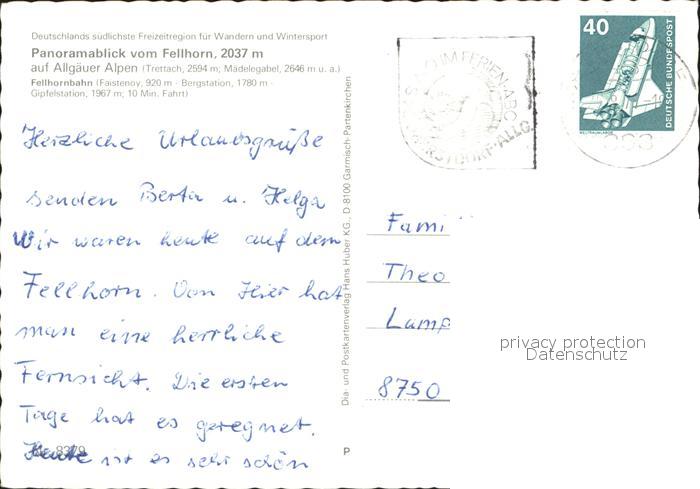 Deutschlands südlichste Freizeitregion für Wandern und Wintersport
Panoramablick vom Fellhorn, 2037 m
auf Allgäuer Alpen (Trettach, 2594 m; Mädelegabel, 2646 m u. a.)
Fellhornbahn (Faistenoy, 920 m - Bergstation, 1780 m -
Gipfelstation, 1967 m; 10 Min. Fahrt)
Herzliche Urlaubsgrüße
senden Berta u. Helga
Wir waren heute auf dem
Fellhorn. Von Hier hat
man eine herrliche
Fernsicht. Die ersten
Tage hat es geregnet.
Heute ist es sehr schön
8379
P
Dia- und Postkartenverlag Hans Huber KG., D-8100 Garmisch-Partenkirchen
FERIEN-ABC
40
DEUTSCHE BUNDESPOST
WELTRAUMLABOR
Fami
Theo
Lamp
8750
privacy protection
Datenschutz